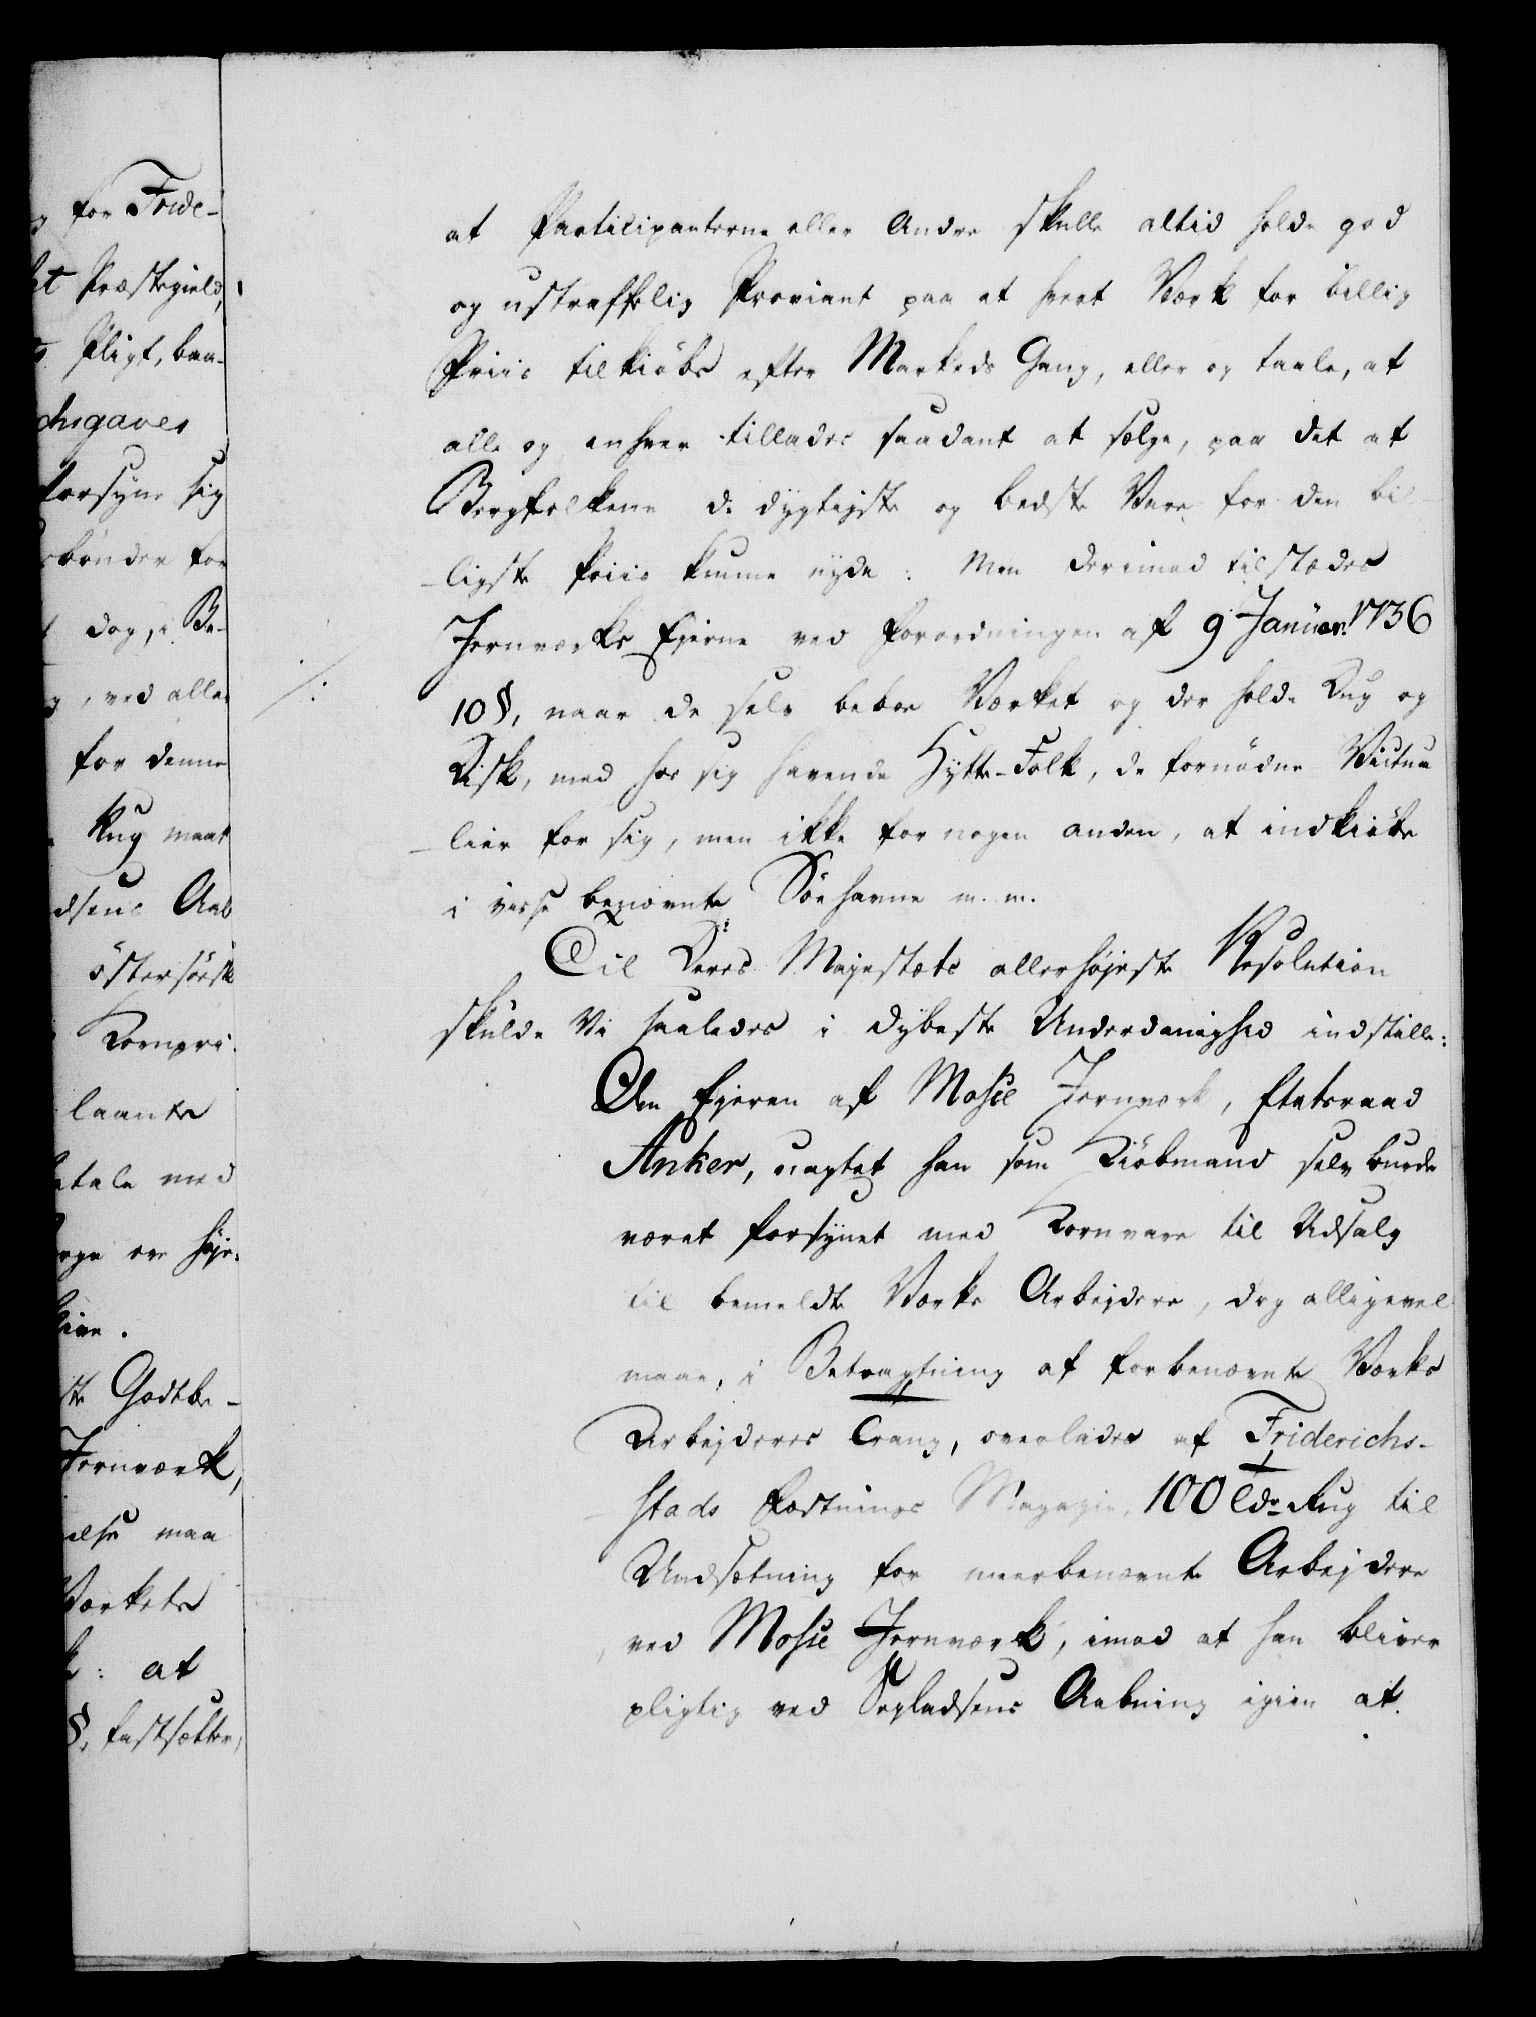 for Fride-
Præstegield,
Pligt, baa-
chsgaves
forsyne sig
bönder for
dog, i Be-
, ved aller
for denne
Rug maat
dsens Aab
östersöisk
Kornpri-
laante
etale med
høje-
give.
ste Godtbe-
Jernværk,
else maa
Værkets
: at
§. fastsætter,
at Participanterne eller Andre skulle altid holde god
og ustraffelig Proviant paa et hvert Værk for billig
Priis tilkiöbs efter Markeds Gang, eller og taale, at
alle og enhver tillades saadant at sælge, paa det at
Bergfolkene de dygtigste og bedste Vare for den bil-
-ligste Priis kunne nyde: Men derimod tilstædes
Jernværks Ejerne ved Forordningen af 9 Januar: 1736
10 §, naar de selv beboe Værket og der holde Dug og
Disk, med hos sig havende Hytte-Folk, de fornødne Victua
-lier for sig, men ikke for nogen anden, at indkiöbe
i visse benævnte Söehavne m. m.
Til Deres Majestæts allerhøjeste Resolution
skulde Vi saaledes i dybeste Underdanighed indstille:
Om Ejeren af Mosse Jernværk, Etatsraad
Anker, uagtet han som Kiöbmand selv burde
været forsynet med Kornvare til Udsalg
til bemeldte Værks Arbejdere, dog alligevel
maae, i Betragtning af forbenævnte Værks
Arbejderes Trang, overlades af Friderichs-
-stads Fæstnings Magazin, 100 Tdr Rug til
Undsætning for meerbenævnte Arbejdere
ved Mosse Jernværk, imod at han bliver
pligtig ved Segladsens Aabning igien at